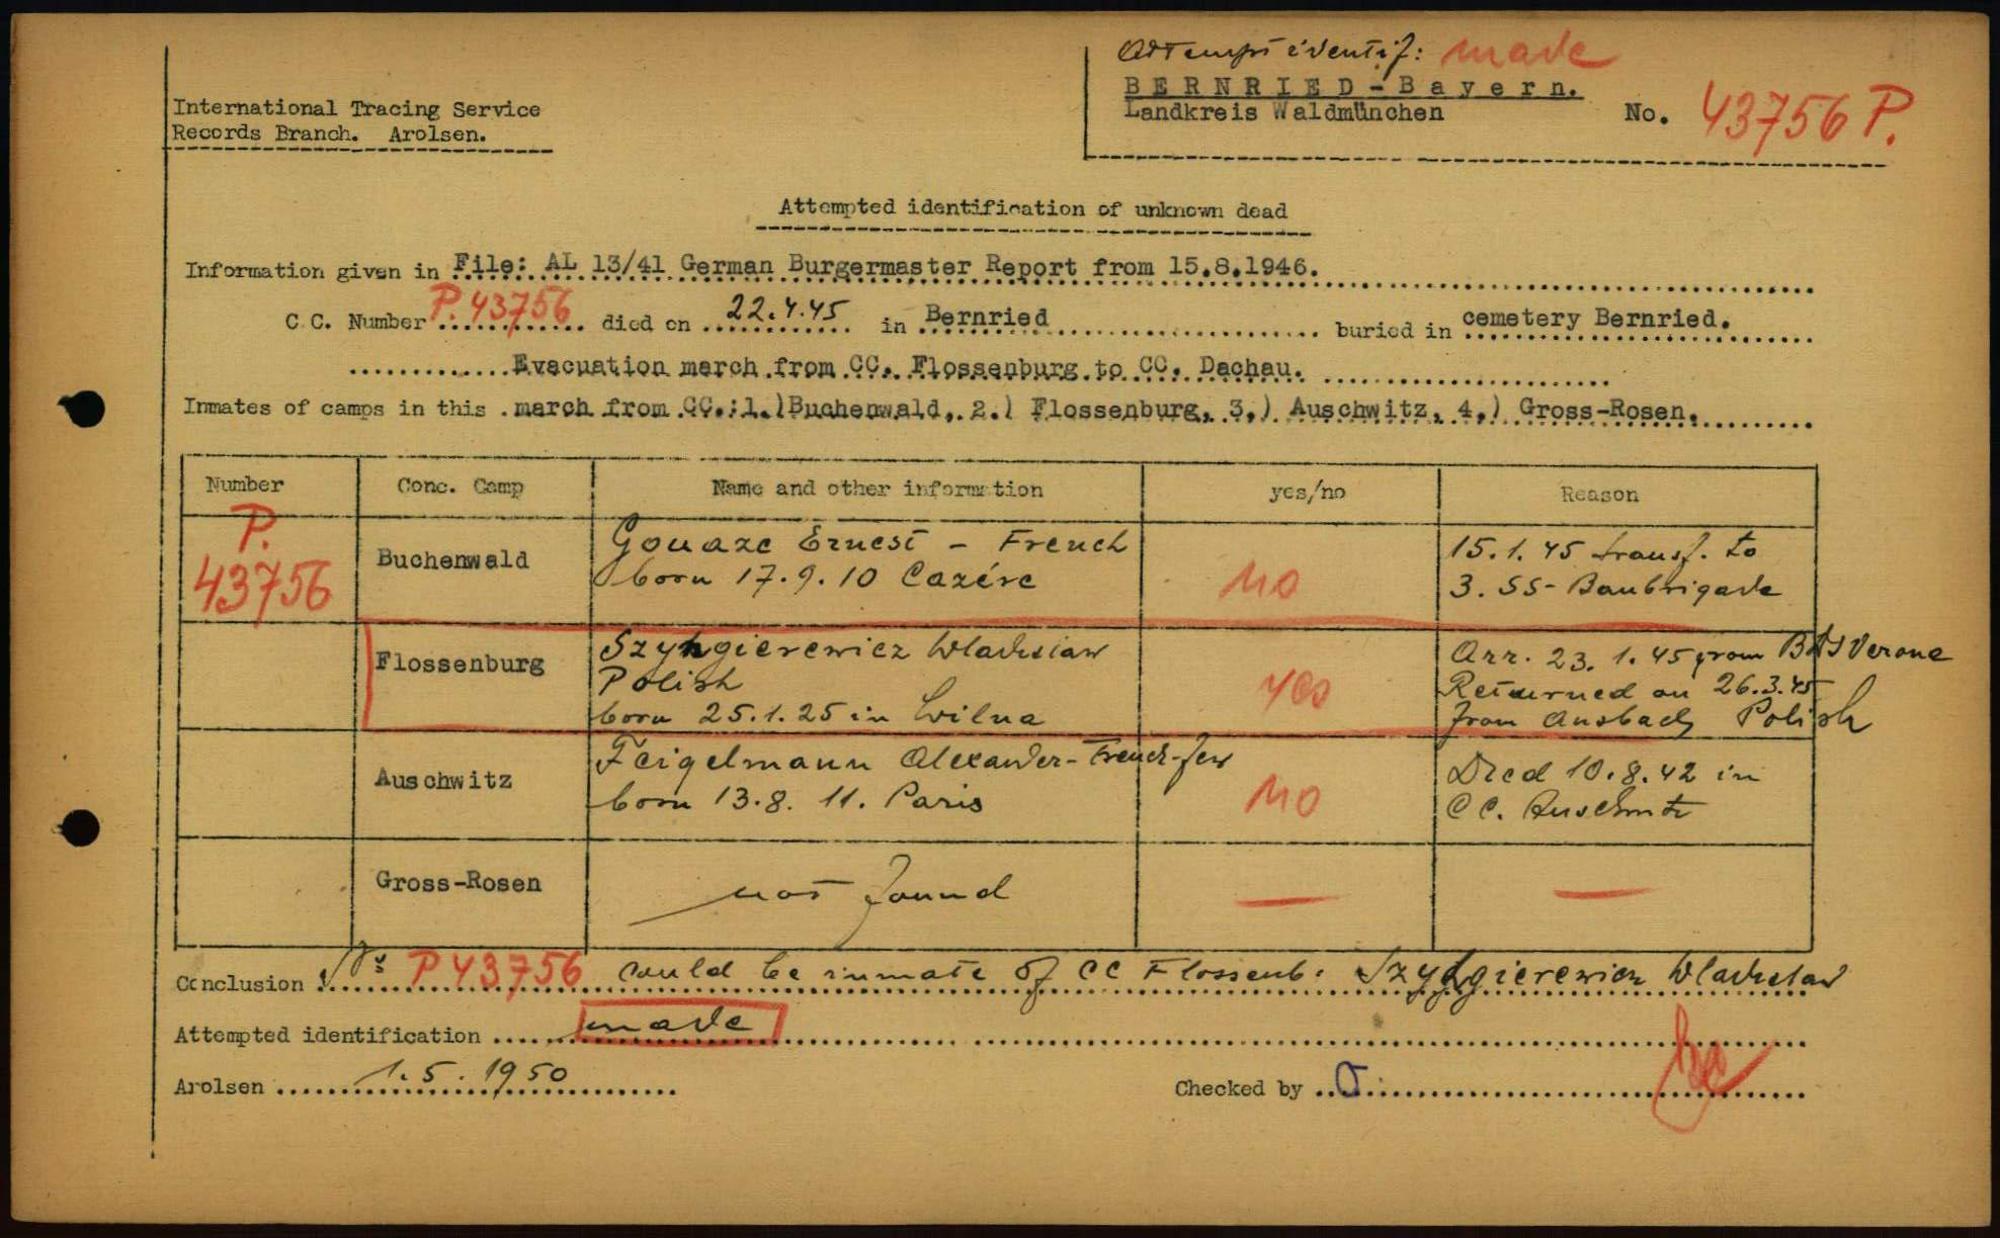 Attempt identif: made
BERNRIED-Bayern.
Landkreis Waldmünchen
No. 43756 P.
International Tracing Service
Records Branch. Arolsen.
Attempted identification of unknown dead
Information given in File: AL 13/41 German Burgermaster Report from 15.8.1946.
C.C. Number P.43756 died on 22.4.45 in Bernried buried in cemetery Bernried.
Evacuation march from CC. Flossenburg to CC. Dachau.
Inmates of camps in this march from CC.:1.)Buchenwald, 2.) Flossenburg, 3.) Auschwitz, 4.) Gross-Rosen.
Number Conc. Camp Name and other information yes/no Reason
P.
43756
Buchenwald
Gouaze Ernest - French
born 17.9.10 Cazére
no
15.1.45 transf. to
3. SS-Baubrigade
Flossenburg
Szyngierewicz Wladislaw
Polish
born 25.1.25 in Wilna
yes
Arr. 23.1.45 from BdS Verona
Returned on 26.3.45
from Ansbach Polish
Auschwitz
Feigelmann Alexander-French-Jew
born 13.8.11. Paris
no
Died 10.8.42 in
CC. Auschwitz
Gross-Rosen
not found
—
—
Conclusion Nr P43756 could be inmate of CC Flossenb: Szyngierewicz Wladislaw
Attempted identification made
Arolsen 1.5.1950
Checked by